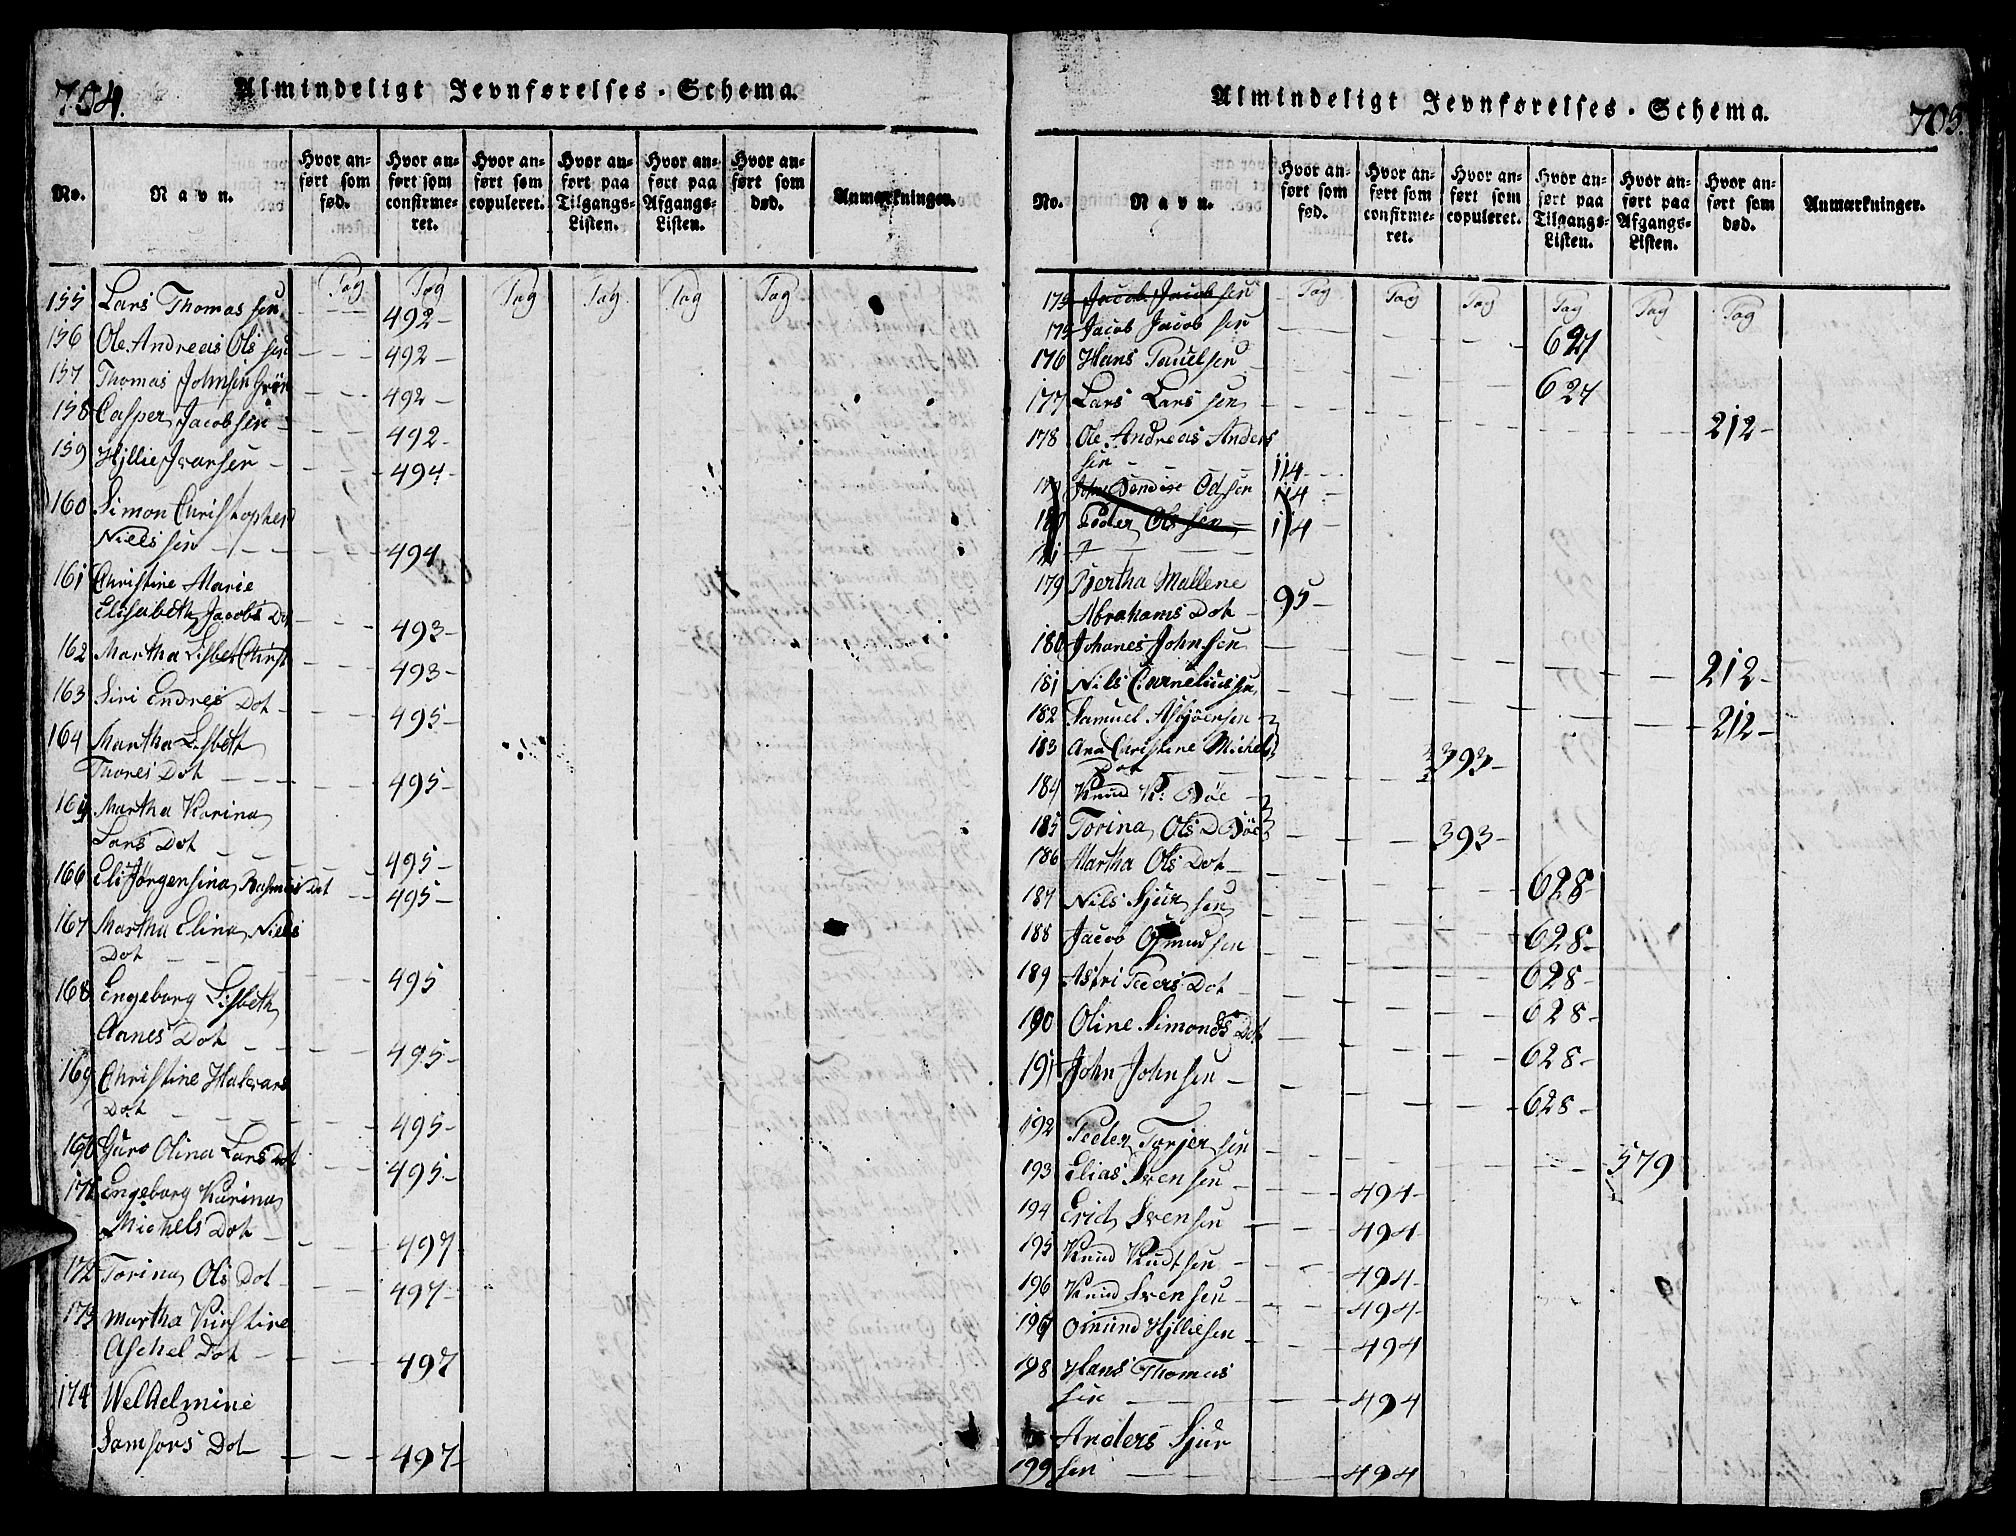 704.
Almindeligt Jevnførelses-Schema.
No.
Navn.
Hvor anført som fød.
Hvor anført som confirmeret.
Hvor anført som copuleret.
Hvor anført paa Tilgangs-Listen.
Hvor anført paa Afgangs-Listen.
Hvor anført som død.
Anmærkninger.
Pag Pag Pag Pag Pag Pag
155 Lars Thomassen 492-
156 Ole Andreas Olssen 492-
157 Thomas Johnsen 492-
158 Casper Jacobsen 492-
159 Hjllie Ivarsen - 494-
160 Simon Christopher
Nielssen 494
161 Christine Marie
Elisabeth Jacobs Dot 493-
162 Martha Lisbet Christ 493-
163 Siri Endres Dot - 495-
164 Martha Lisbeth
Thores Dot 495-
165 Martha Karina
Lars Dot 495-
166 Eli Jørgensina Rasmus Dot 495-
167 Martha Elina Niels
Dot 495
168 Engeborg Lisbeth
Aanes Dot 495-
169 Christine Halvars
Dot 495-
170 Guro Olina Lars Dot 495-
171 Engeborg Karina
Michels Dot - 497
172 Torina Ols Dot 497-
173 Martha Kirstine
Aschel Dot 497
174 Welhelmine
Samsors Dot 497-
705.
Almindeligt Jevnførelses-Schema.
No.
Navn.
Hvor anført som fød.
Hvor anført som confirmeret.
Hvor anført som copuleret.
Hvor anført paa Tilgangs-Listen.
Hvor anført paa Afgangs-Listen.
Hvor anført som død.
Anmærkninger.
Pag Pag Pag Pag Pag Pag
175 Jacob Jacobsen
175 Jacob Jacobsen 627
176 Hans Pauelsen 627
177 Lars Larssen 212-
178 Ole Andreas Anders
sen 114-
179 Odsen 114-
180 Peder Olssen 114
179 Bertha Mallene
Abrahams Dot - 95-
180 Johanes Johnsen 212-
181 Nils Carneliussen 212-
182 Samuel Asbjöensen
183 Ana Christine Michels
Dot 393-
184 Knud K: Böe
185 Torina Ols D Böe 393-
186 Martha Ols Dot 628-
187 Nils Sjursen 628-
188 Jacob Osmundsen 628-
189 Astri Peders Dot 628-
190 Oline Simons Dot 628-
191 John Johnsen 628-
192 Peder Torjersen 579
193 Elias Svensen 494-
194 Erich Svensen 494-
195 Knud Knudtsen 494-
196 Knud Svensen 494-
197 Omund Hjlliesen 494
198 Hans Thomas
sen 494
Anders Sjur
199 sen 494